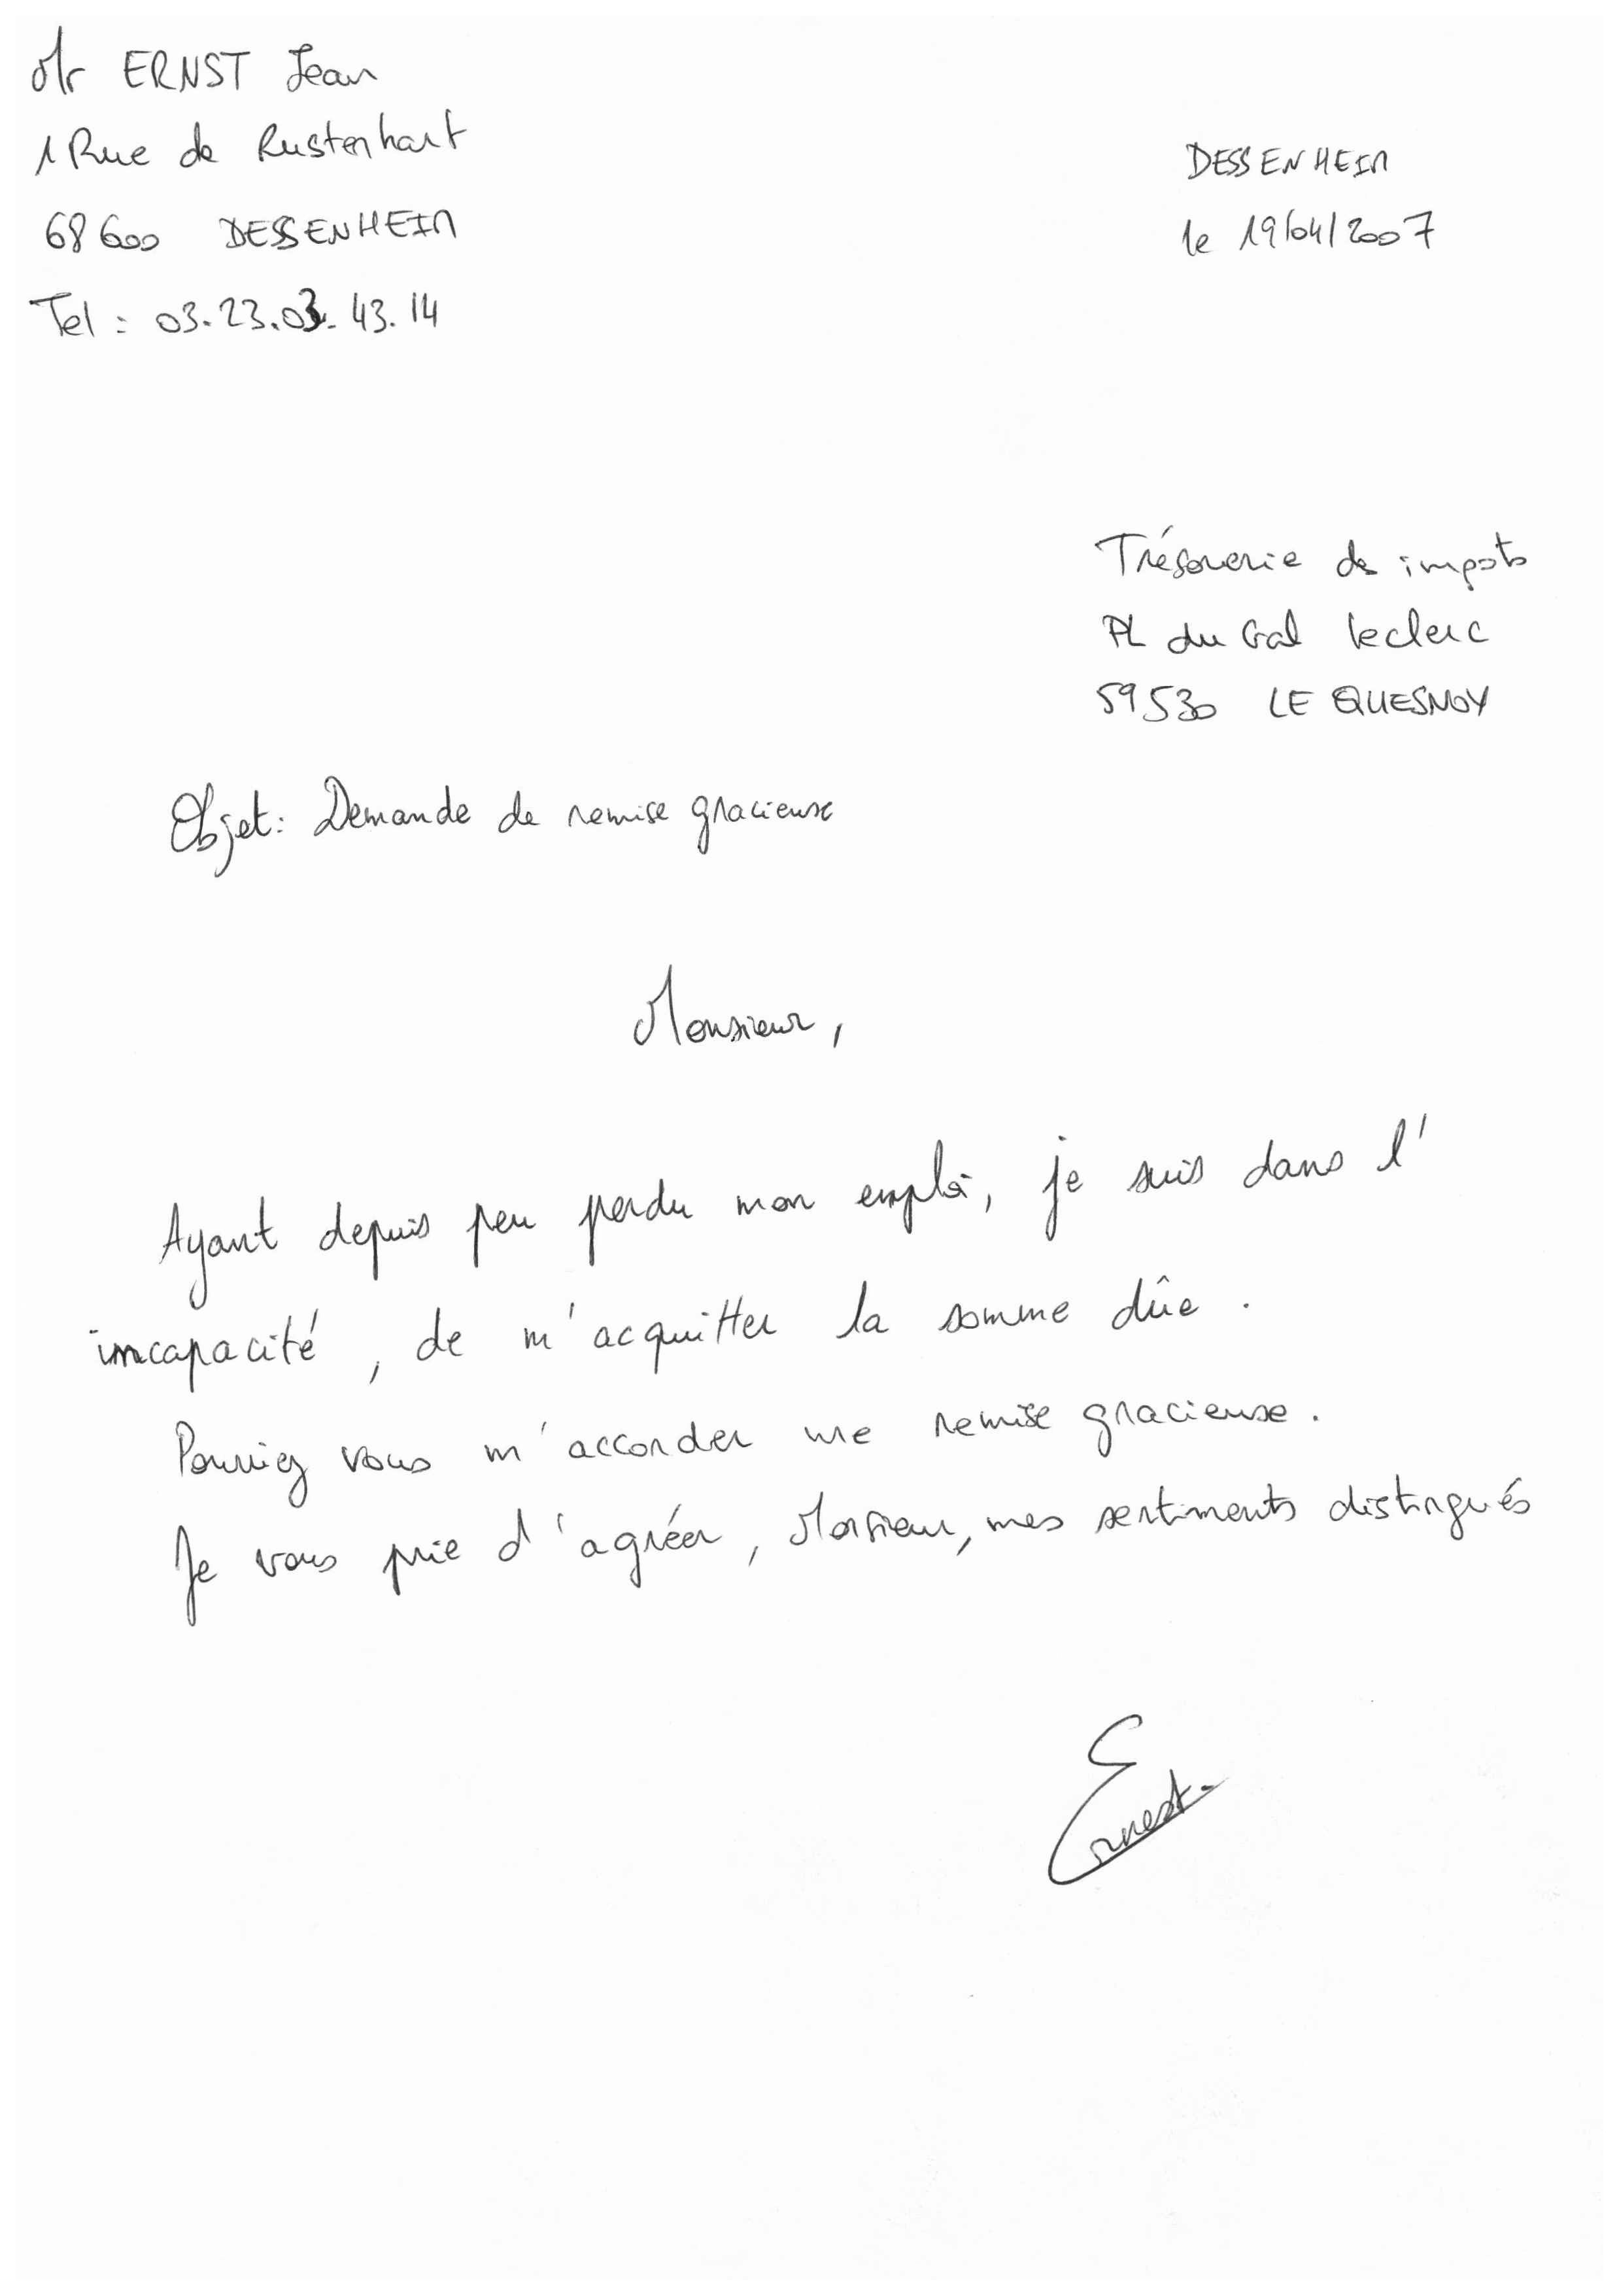 Mr ERNST Jean
1 Rue de Rustenhart
68600 DESSENHEIM
Tel : 03.23.03.43.14
DESSENHEIM
le 19/04/2007
Trésorerie des impots
PL du Gal Leclerc
59530 LE QUESNOY
Objet : Demande de remise gracieuse
Monsieur,
Ayant depuis peu perdu mon emploi, je suis dans l'
incapacité, de m'acquitter la somme dûe.
Pourriez vous m'accorder une remise gracieuse.
Je vous prie d'agréer, Monsieur, mes sentiments distingués
Ernest